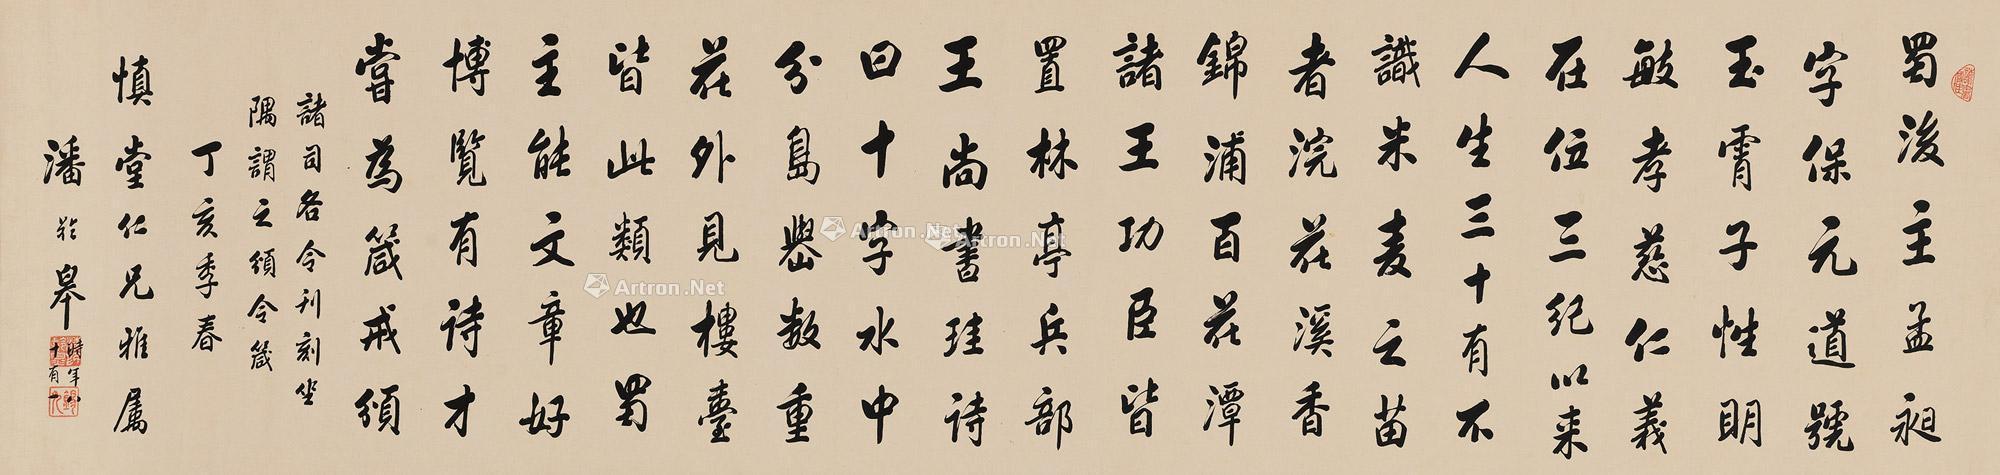 蜀後主孟昶
字保元道號
玉霄子性明
敏孝慈仁義
在位三紀以来
人生三十有不
識米麦之苗
者浣花溪香
錦浦百花潭
諸王功臣皆
置林亭兵部
王尚書珪詩
曰十字水中
分島嶼数重
花外見樓臺
皆此類也蜀
主能文章好
博覽有詩才
嘗為箴戒頒
諸司各令刊刻坐
隅謂之頒令箴
丁亥季春
慎堂仁兄雅属
潘齡皋
時年
十有一
Artron.Net
Artron.Net
Artron.Net